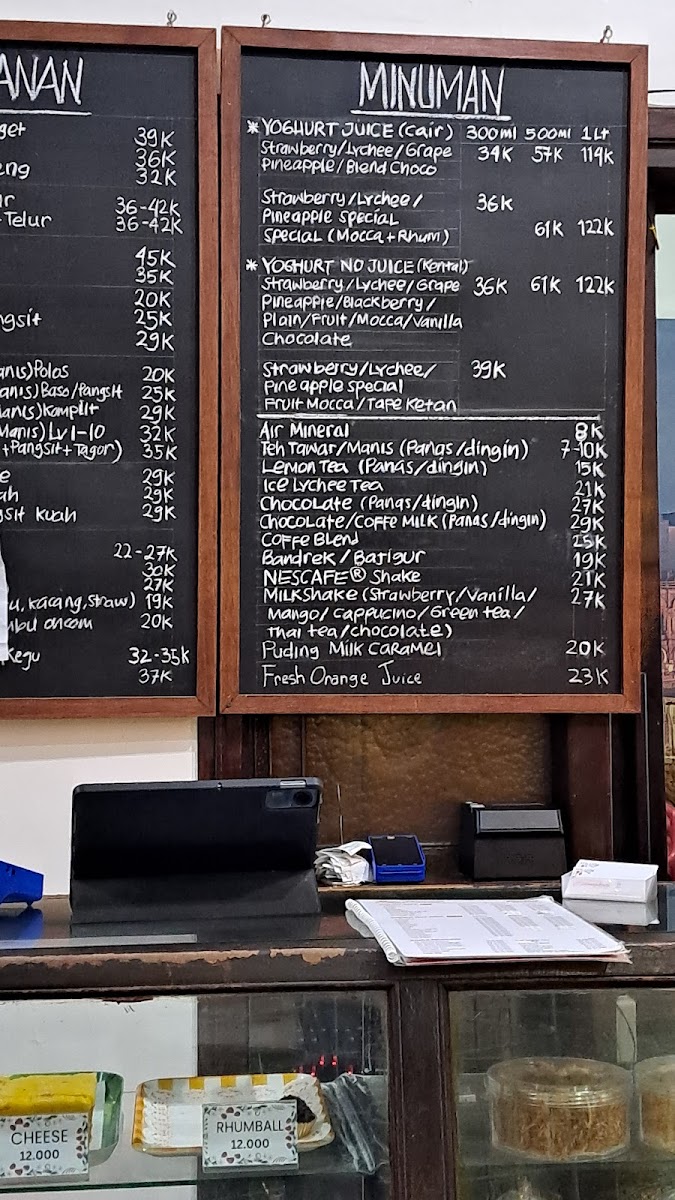 ANAN
get 39K
36K
eng 32K
ar 36-42K
Telur 36-42K
45K
35K
20K
ngsit 25K
29K
anis) Polos 20K
anis) Baso/Pangsit 25K
Manis) Komplit 29K
Manis) Lv 1-10 32K
+Pangsit+Tagor) 35K
e 29K
ah 29K
gsit kuah 29K
22-27K
30K
27K
u, kacang, straw) 19K
mbu oncom 20K
Regu 32-35K
37K
MINUMAN
* YOGHURT JUICE (Cair) 300ml 500ml 1Lt
Strawberry/Lychee/Grape 34K 57K 114K
Pineapple/Blend Choco
Strawberry/Lychee/ 36K
Pineapple Special
Special (Mocca+Rhum) 61K 122K
* YOGHURT NO JUICE (Kental)
Strawberry/Lychee/Grape 36K 61K 122K
Pineapple/Blackberry/
Plain/Fruit/Mocca/Vanilla
Chocolate
Strawberry/Lychee/ 39K
Pineapple Special
Fruit Mocca/Tape Ketan
Air Mineral 8K
Teh Tawar/Manis (Panas/dingin) 7-10K
Lemon Tea (Panas/dingin) 15K
Ice Lychee Tea 21K
Chocolate (Panas/dingin) 27K
Chocolate/Coffe Milk (Panas/dingin) 29K
Coffe Blend 25K
Bandrek/Bajigur 19K
NESCAFE® Shake 21K
Milkshake (Strawberry/Vanilla/ 27K
Mango/Cappucino/Green tea/
Thai tea/chocolate)
Puding Milk Caramel 20K
Fresh Orange Juice 23K
CHEESE
12.000
RHUMBALL
12.000